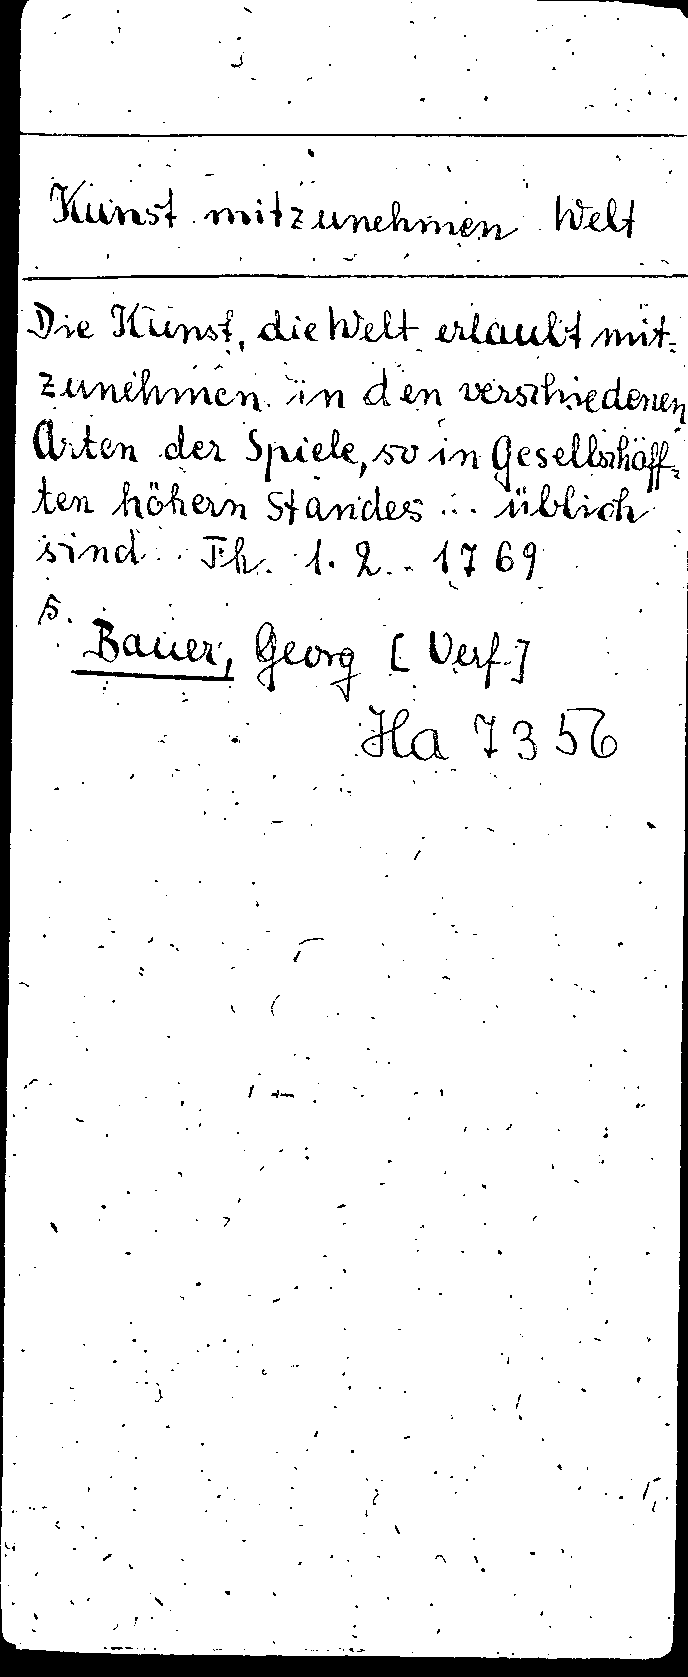 Kunst mitzunehmen Welt
Die Kunst, die Welt erlaubt mit-
zunehmen in den verschiedenen
Arten der Spiele, so in Gesellschäff-
ten höhern Standes ... üblich
sind. Th. 1. 2. 1769
s.
Bauer, Georg [Verf.]
Ha 7356